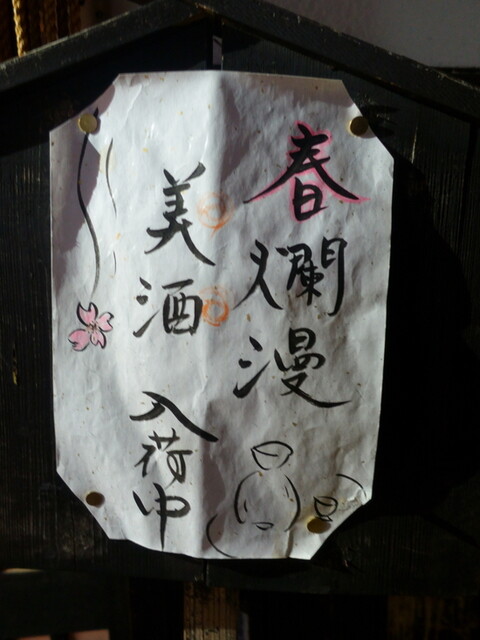 春爛漫
美酒
入荷中